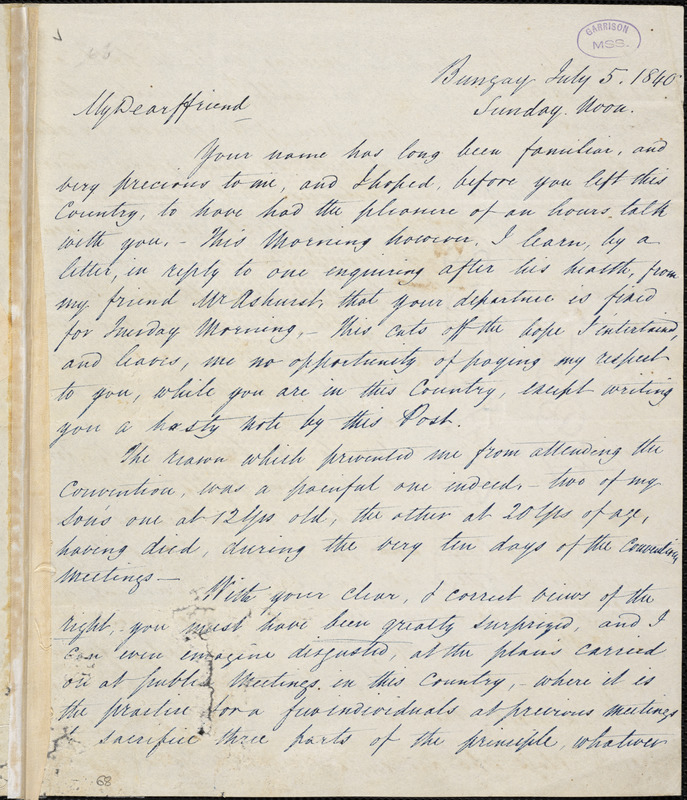 GARRISON
MSS.
Bungay July 5. 1840
Sunday. Noon.
My Dear ffriend
Your name has long been familiar, and
very precious to me, and I hoped, before you left this
Country, to have had the pleasure of an hours talk
with you. – This Morning however, I learn, by a
letter, in reply to one enquiring after his health, from
my friend Mr Ashurst, that your departure is fixed
for Tuesday Morning, – this cuts off the hope I entertained,
and leaves, me no opportunity of paying my respect
to you, while you are in this Country, except writing
you a hasty note by this Post.
The reason which prevented me from attending the
Convention, was a painful one indeed, – two of my
sons one at 12 Yrs old, the other at 20 Yrs of age,
having died, during the very ten days of the convention
Meetings –
With your clear, & correct views of the
right, – you must have been greatly surprized, and I
can even emagine disgusted, at the plans carried
on at public Meetings. in this Country, – where it is
the practise for a few individuals at previous meetings
to sacrifice three parts of the principle, whatever
68